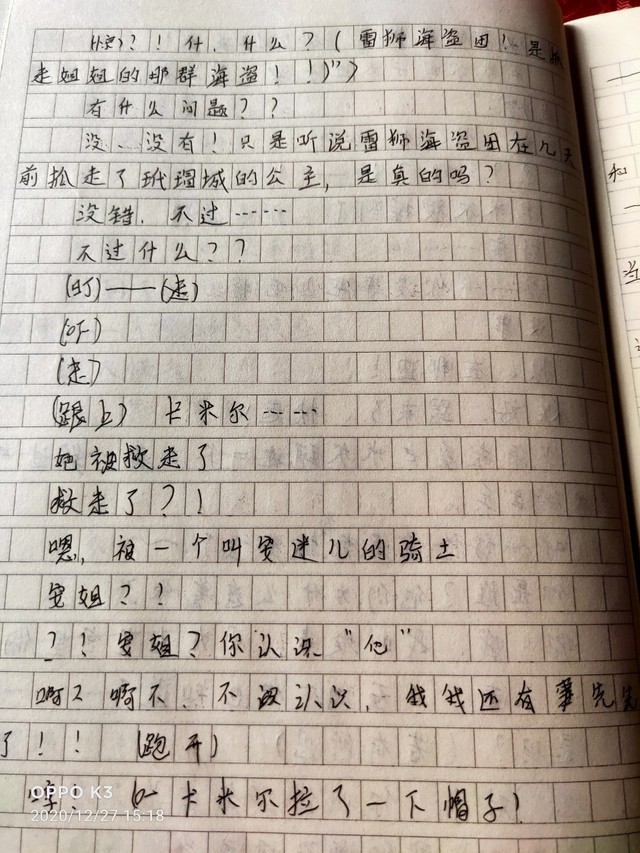 (惊)？！什、什么？(雷狮海盗团！是抓
走姐姐的那群海盗！！)")
有什么问题？？
没、没有！只是听说雷狮海盗团在几天
前抓走了玳瑁城的公主，是真的吗？
没错，不过……
不过什么？？
(盯)——(走)
(吓)
(走)
(跟上) 卡米尔……
她被救走了
救走了？！
嗯，被一个叫安迷儿的骑士
安姐？？
？！安姐？你认识"他"
啊？啊不、不没认识，我我还有事先
了！！ (跑开)
卡米尔拉了一下帽子！
和
当
OPPO K3
2020/12/27 15:18